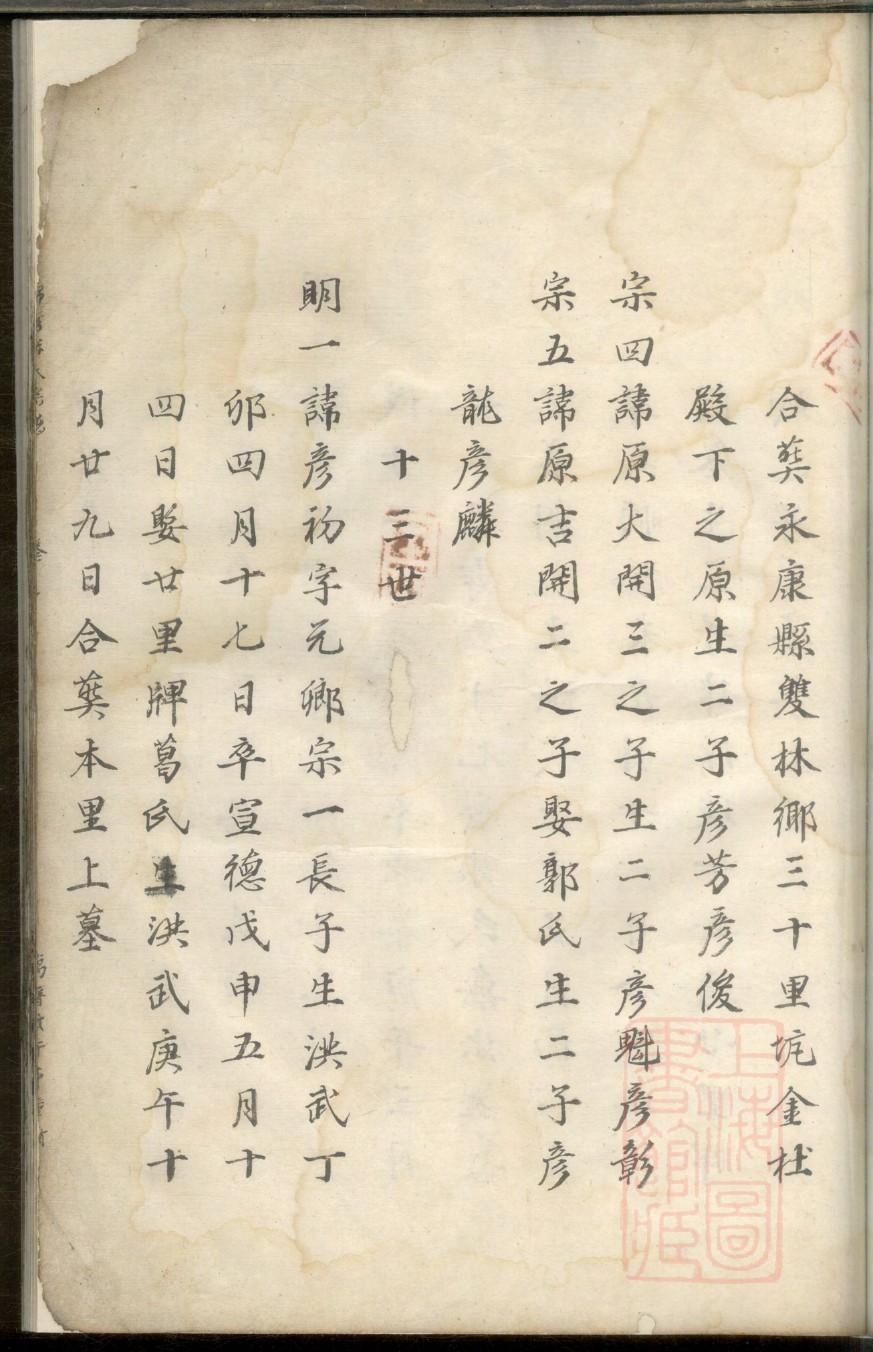 合葬永康縣雙林鄉三十里坑金杜
殿下之原生二子彥芳彥俊
宗四諱原大開三之子生二子彥魁彥彰
宗五諱原吉開二之子娶郭氏生二子彥
龍彥麟
十三世
明一諱彥初字元卿宗一長子生洪武丁
卯四月十七日卒宣德戊申五月十
四日娶廿里牌葛氏生洪武庚午十
月廿九日合葬本里上墓
上海圖書館藏